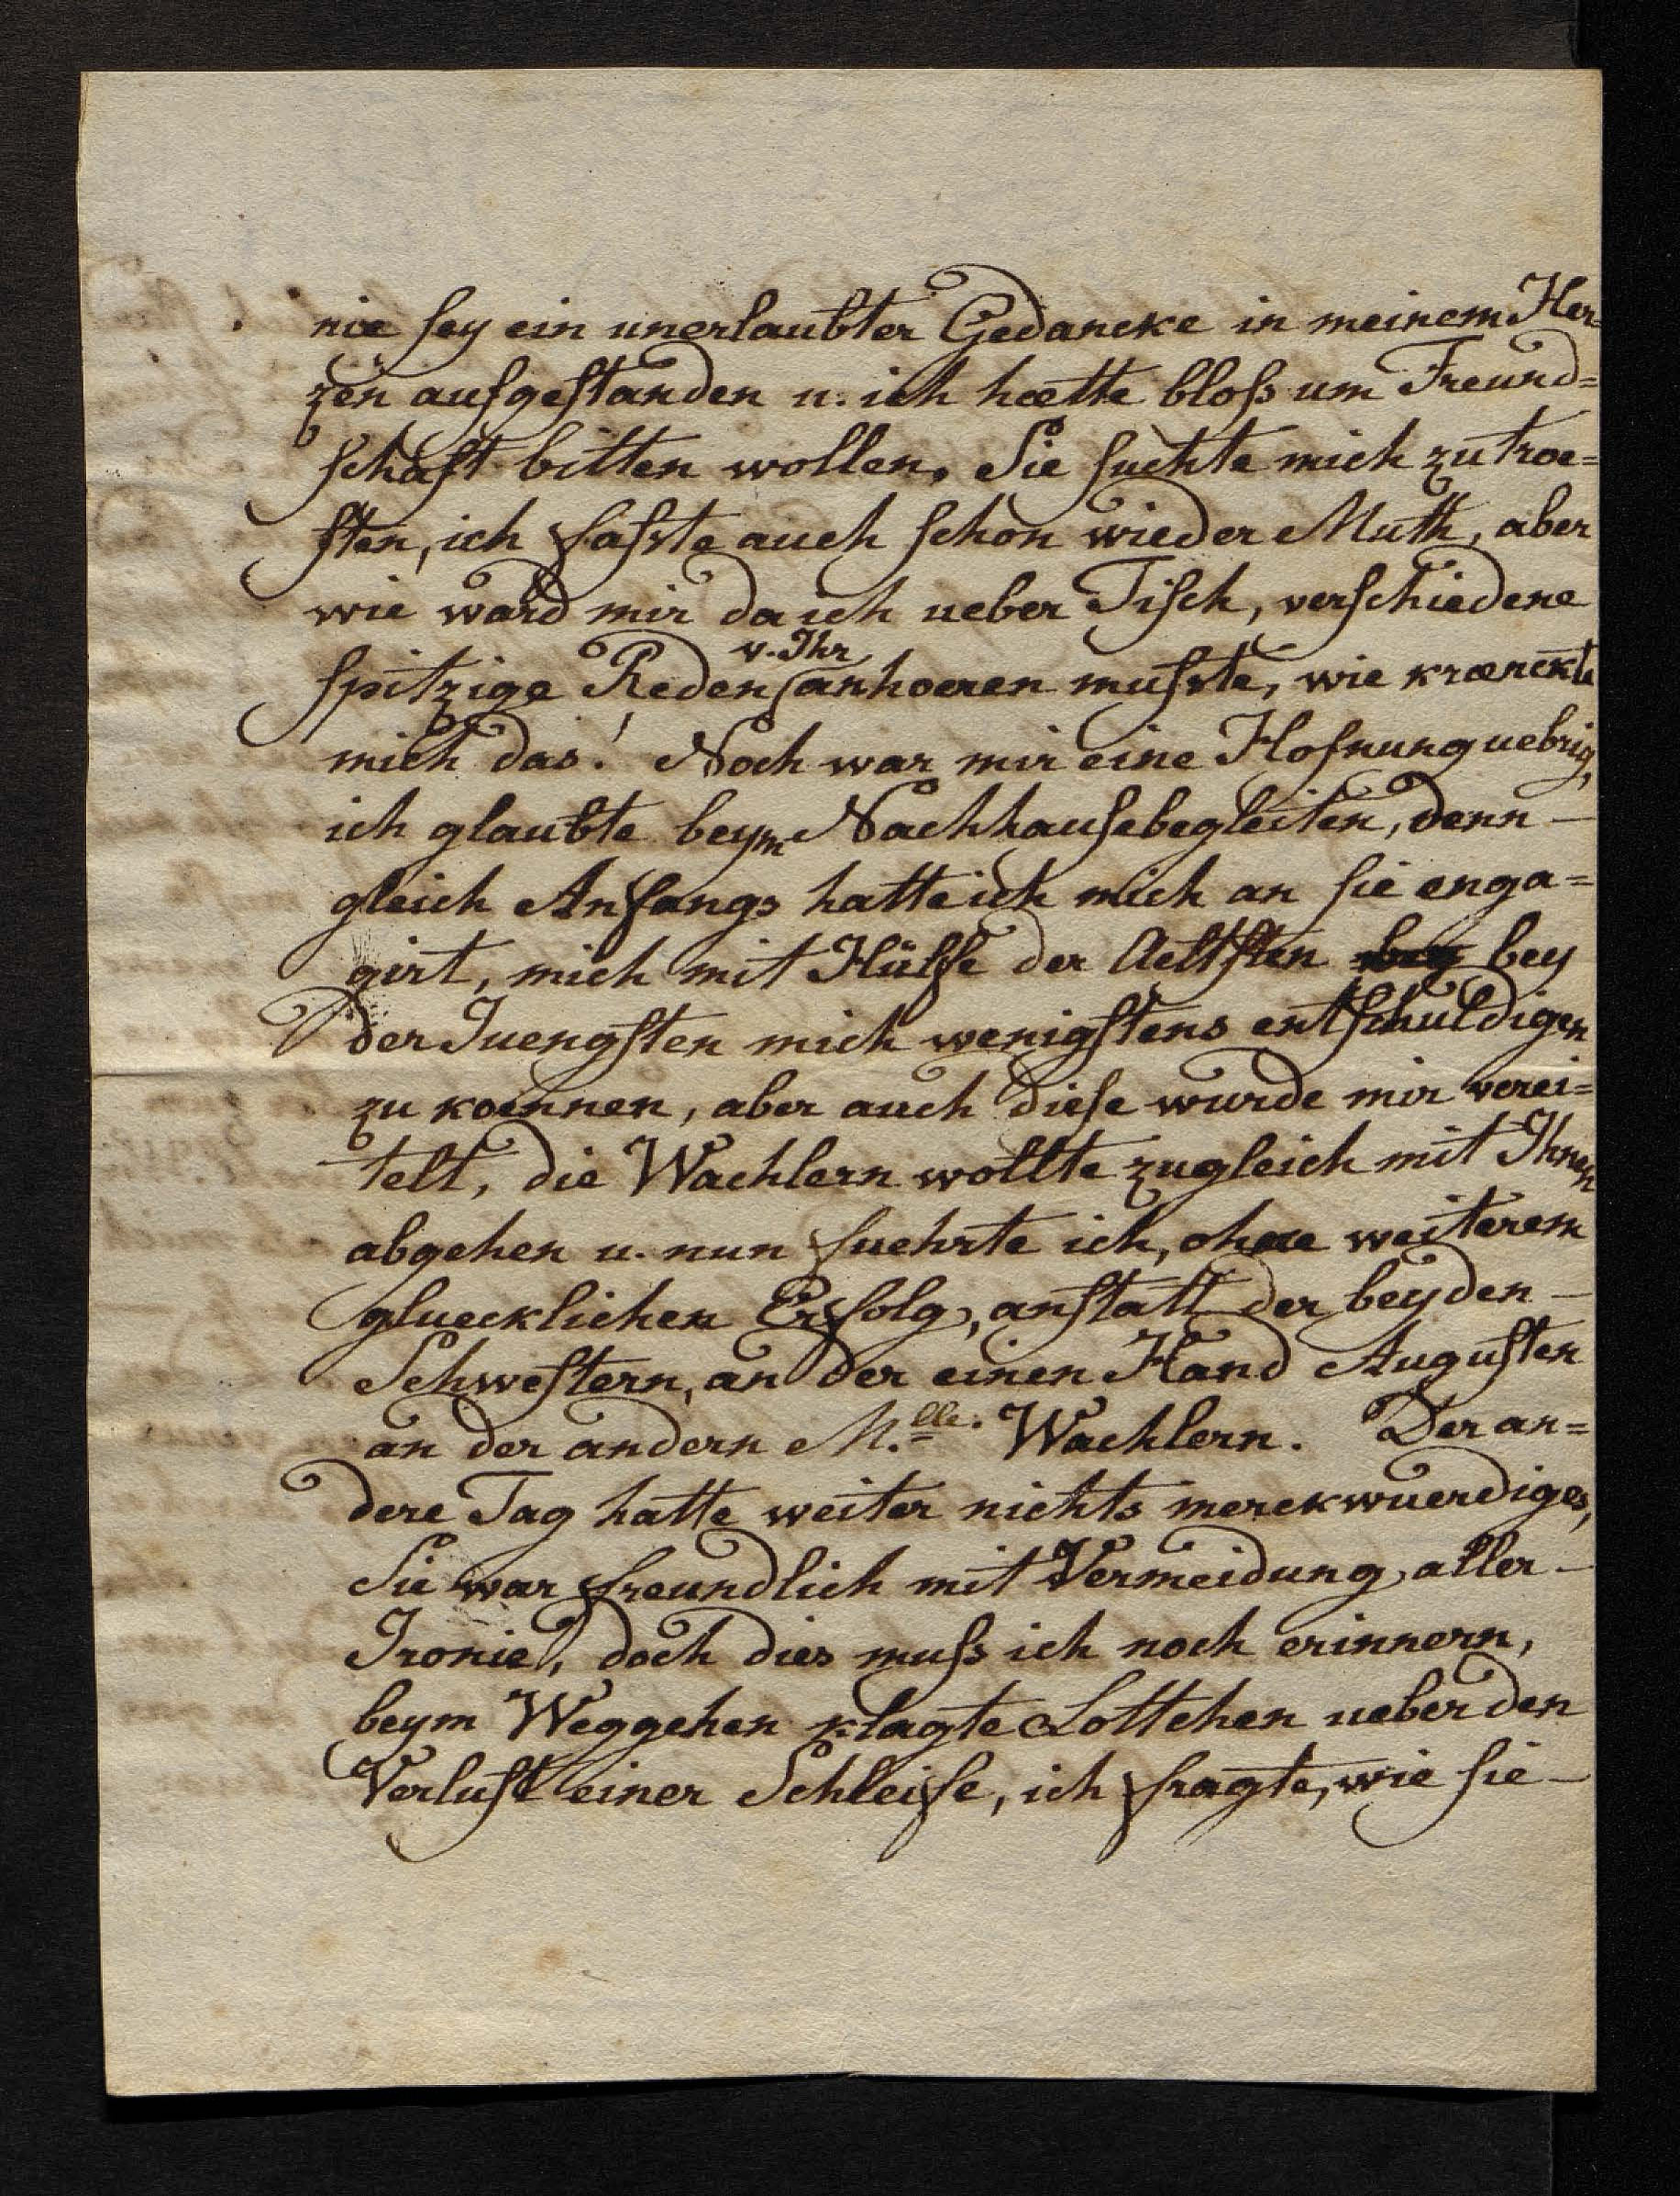 nie sey ein unerlaubter Gedancke in meinem Her-
zen aufgestanden u. ich hætte bloß um Freund=
schaft bitten wollen. Sie suchte mich zu troe=
sten, ich fasste auch schon wieder Muth, aber
wie ward mir da ich ueber Tisch, verschiedene
v. Ihr
spitzige Reden anhoeren musste, wie krænckte
mich das! Noch war mir eine Hofnung uebrig,
ich glaubte beym Nachhausebegleiten, denn –
gleich Anfangs hatte ich mich an sie enga=
girt, mich mit Hülfe der Aeltsten bey
der Juengsten mich wenigstens entschuldigen
zu koennen, aber auch diese wurde mir verei=
telt, die Wachlern wollte zugleich mit Ihnen
abgehen u. nun fuehrte ich, ohne weiterem
gluecklichen Erfolg, anstatt der beyden –
Schwestern, an der einen Hand Augusten
an der andern M.lle. Wachlern. Der an=
dere Tag hatte weiter nichts merckwuerdiges,
Sie war freundlich mit Vermeidung aller –
Ironie, doch dies muß ich noch erinnern,
beym Weggehen klagte Lottchen ueber den
Verlust einer Schleife, ich fragte, wie sie –